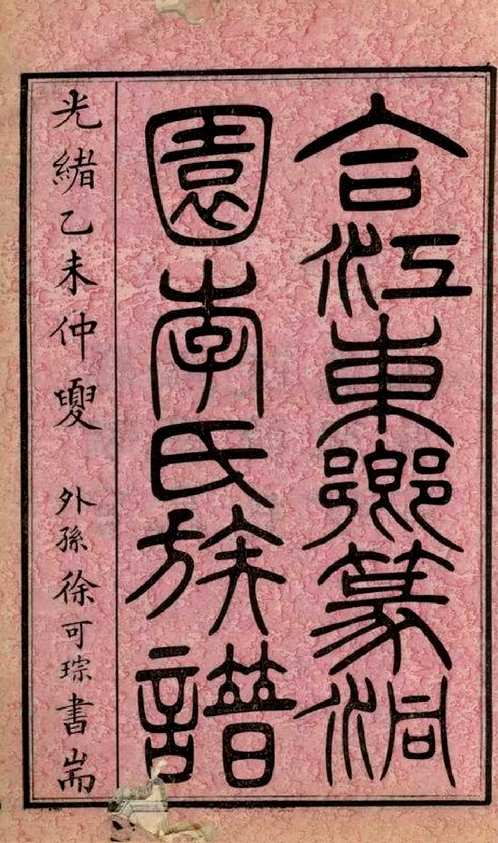 合江東鄉篆洞
園李氏族譜
光緒乙未仲夏 外孫徐可琮書耑